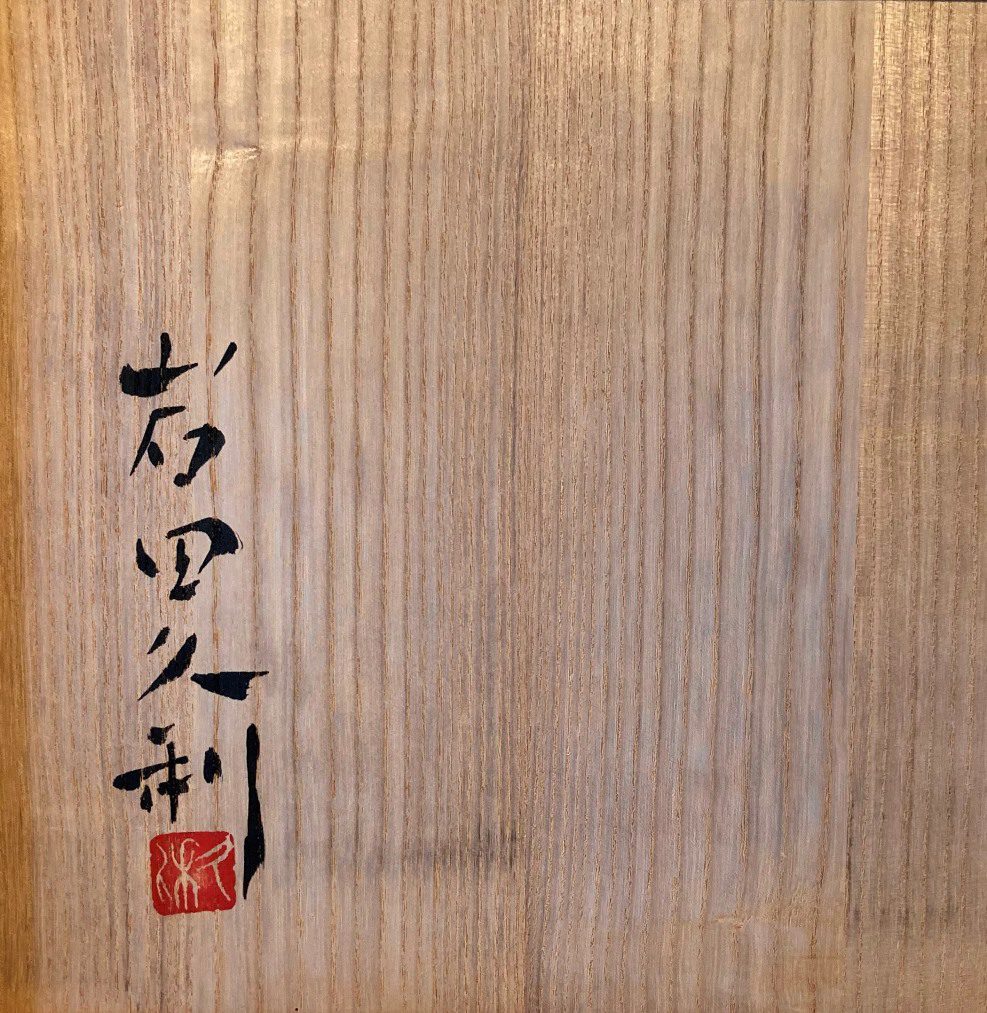 岩田久利